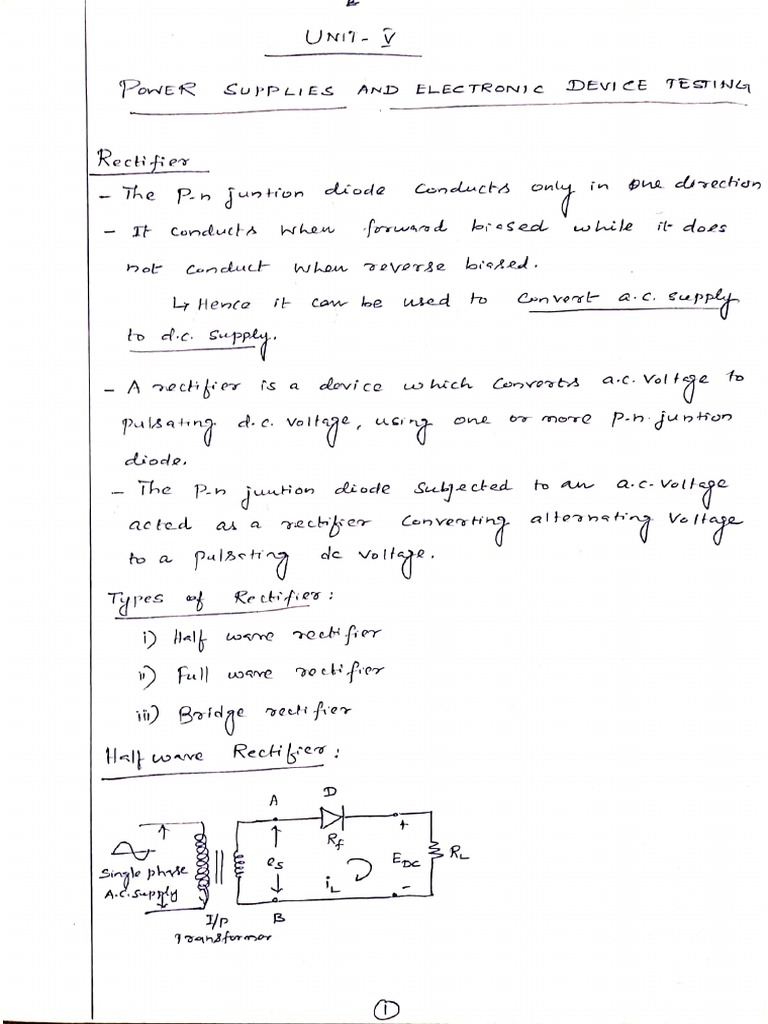 UNIT - V
POWER SUPPLIES AND ELECTRONIC DEVICE TESTING
Rectifier
- The P-n juntion diode conducts only in one direction
- It conducts when forward biased while it does
not conduct when reverse biased.
↳ Hence it can be used to convert a.c. supply
to d.c. supply.
- A rectifier is a device which converts a.c. voltage to
pulsating d.c. voltage, using one or more P-n juntion
diode.
- The P-n juntion diode subjected to an a.c. voltage
acted as a rectifier converting alternating voltage
to a pulsating dc voltage.
Types of Rectifier:
i) Half wave rectifier
ii) Full wave rectifier
iii) Bridge rectifier
Half wave Rectifier:
A D
Rf
+
Single phase
A.C. supply
es
iL
EDC
RL
-
I/P
Transformer
B
1